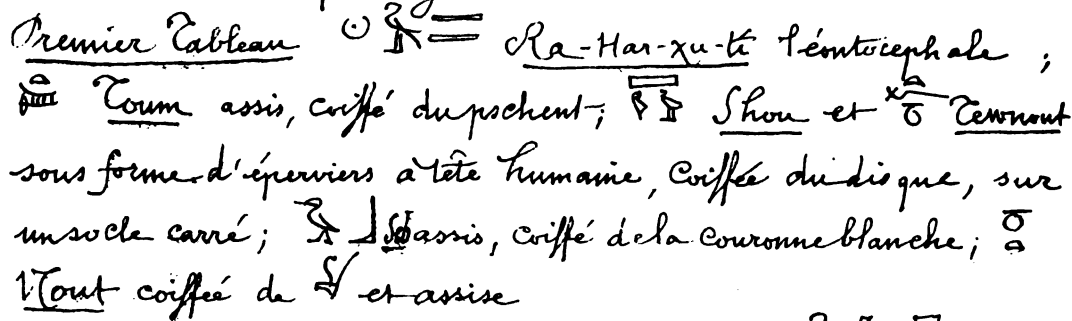 Premier Tableau Ra-Har-χu-ti léontocéphale ;
Toum assis, coiffé du pschent ; Shou et Tewnout
sous forme d'éperviers à tête humaine, coiffée du disque, sur
un socle carré ; assis, coiffé de la couronne blanche ;
Nout coiffée de et assise